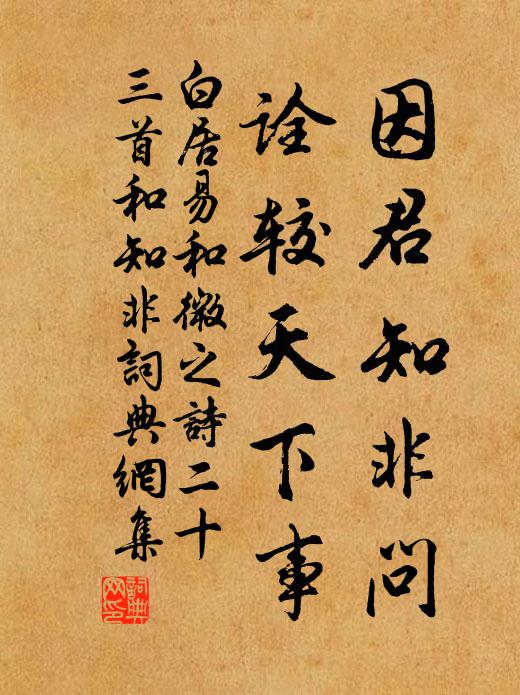 因君知非问
诠较天下事
白居易和微之詩二十
三首和知非詞典網集
詞典
网印